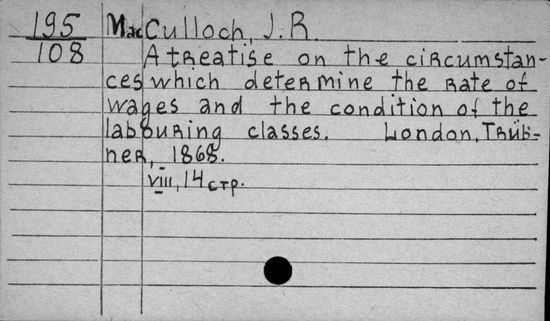 195 MacCulloch, J. R.
108 A treatise on the circumstan-
ces which determine the rate of
wages and the condition of the
labouring classes. London, Trüb-
ner, 1868.
VIII, 14 стр.